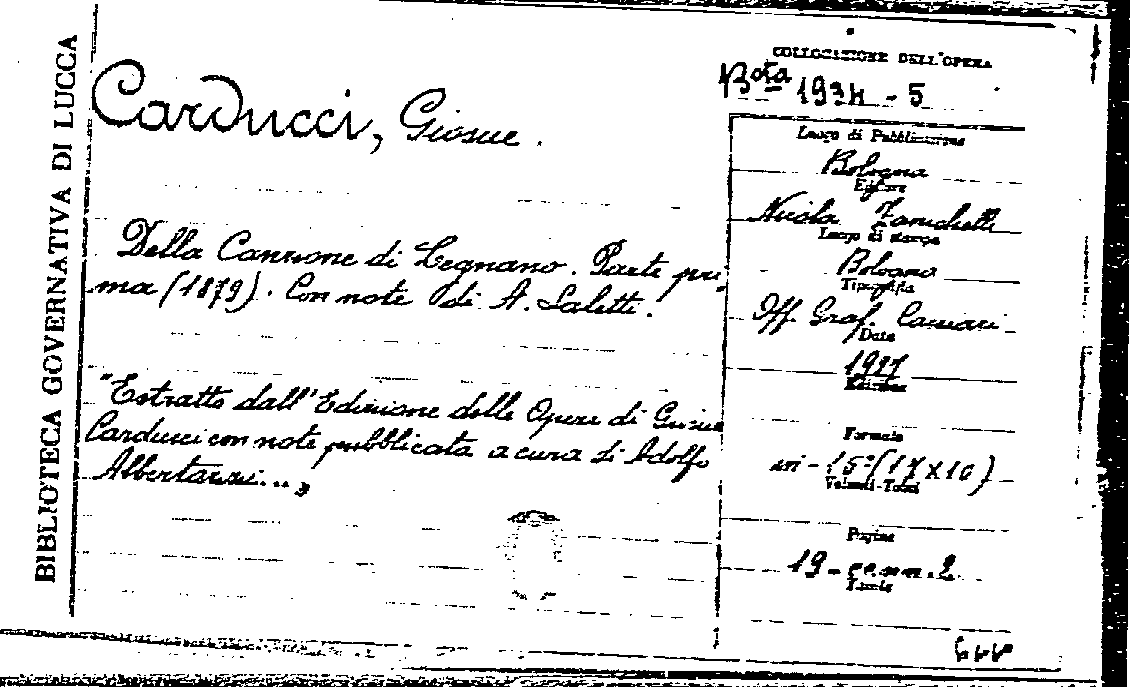 BIBLIOTECA GOVERNATIVA DI LUCCA
Carducci, Giosue.
Della Canzone di Legnano. Parte pri-
ma (1879). Con note di A. Saletti.
"Estratto dall'Edizione delle Opere di Giosue
Carducci con note pubblicata a cura di Adolfo
Albertazzi..."
COLLOCAZIONE DELL'OPERA
Bta 1934 - 5
Luogo di Pubblicazione
Bologna
Editore
Nicola Zanichelli
Luogo di stampa
Bologna
Tipografia
Off. Graf. Cacciari
Data
Edizione
Formato
in-16°(17x10)
Volumi-Tomi
Pagine
19 - cc.nn.2
Tavole